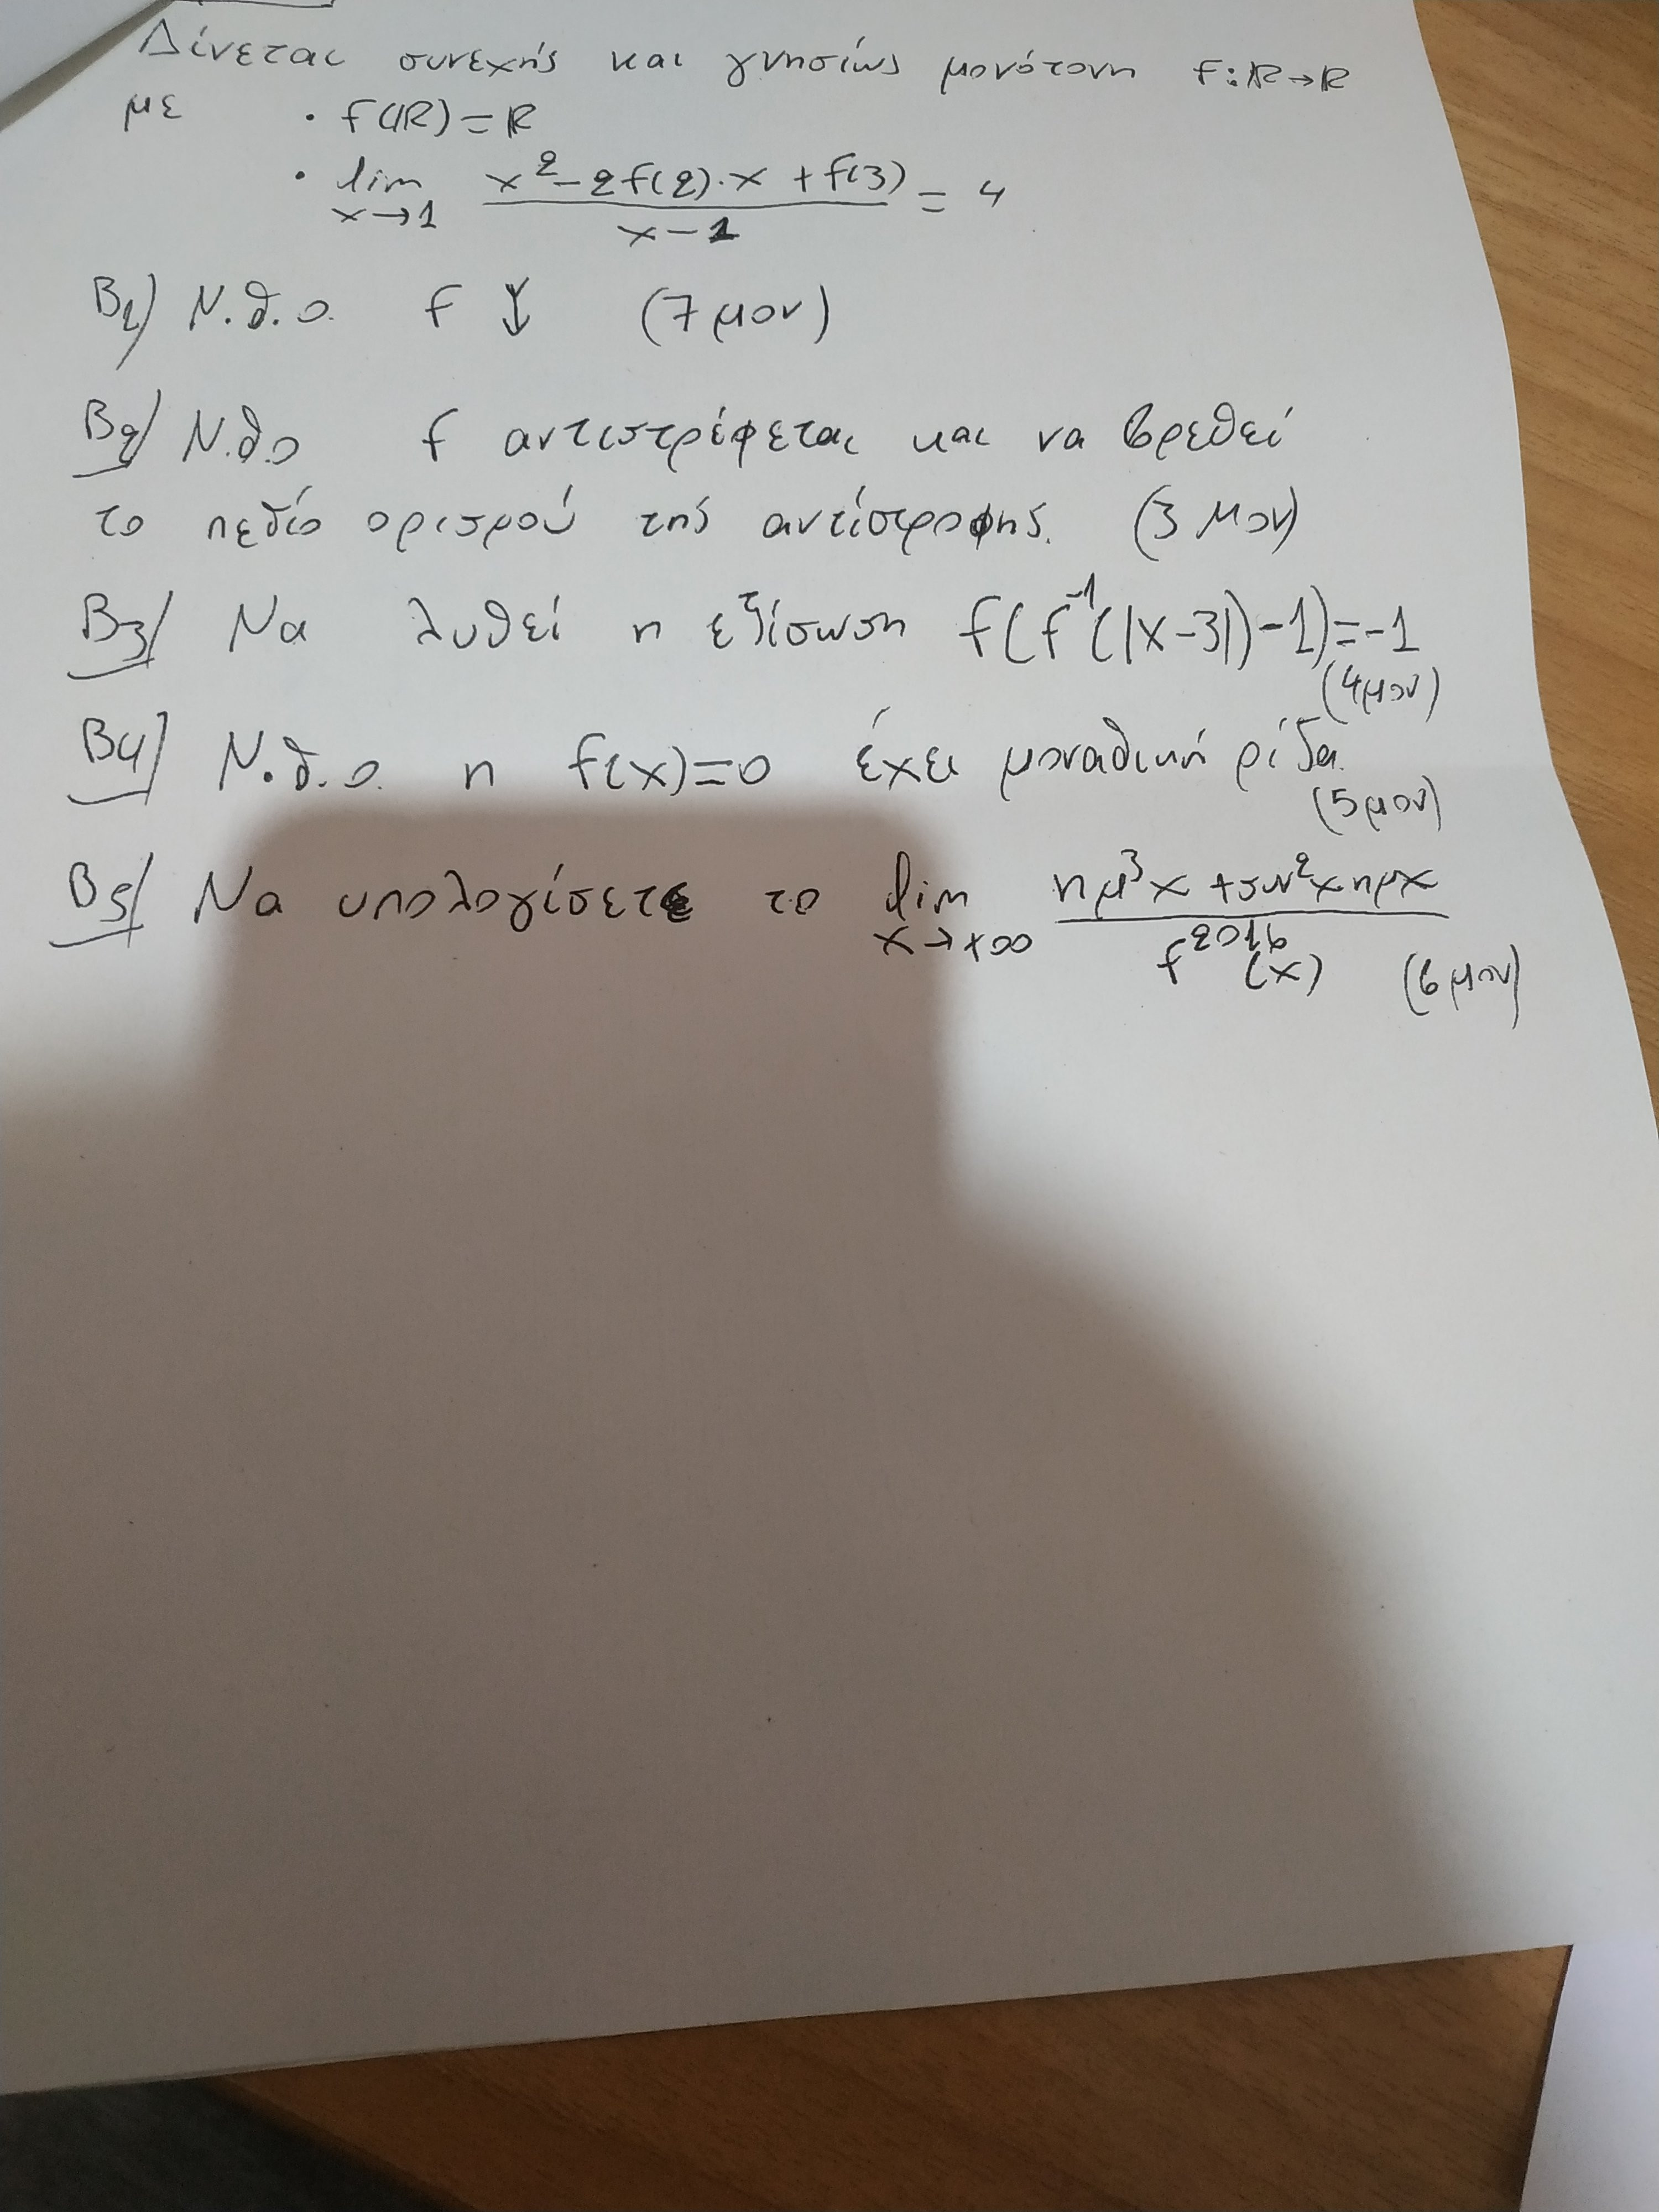 Δίνεται συνεχής και γνησίως μονότονη f:ℝ→ℝ
με · f(ℝ)=ℝ
· lim x→1 (x²-2f(2)·x+f(3))/(x-1) = 4
B1) Ν.δ.ο. f ↓ (7 μον)
B2/ Ν.δ.ο f αντιστρέφεται και να βρεθεί
το πεδίο ορισμού της αντίστροφης. (3 μον)
B3/ Να λυθεί η εξίσωση f(f⁻¹(|x-3|)-1)=-1
(4μον)
B4/ Ν.δ.ο. η f(x)=0 έχει μοναδική ρίζα.
(5μον)
B5/ Να υπολογίσετε το lim x→+∞ (ημ³x+συν²xημx)/(f²⁰¹⁶(x)) (6μον)